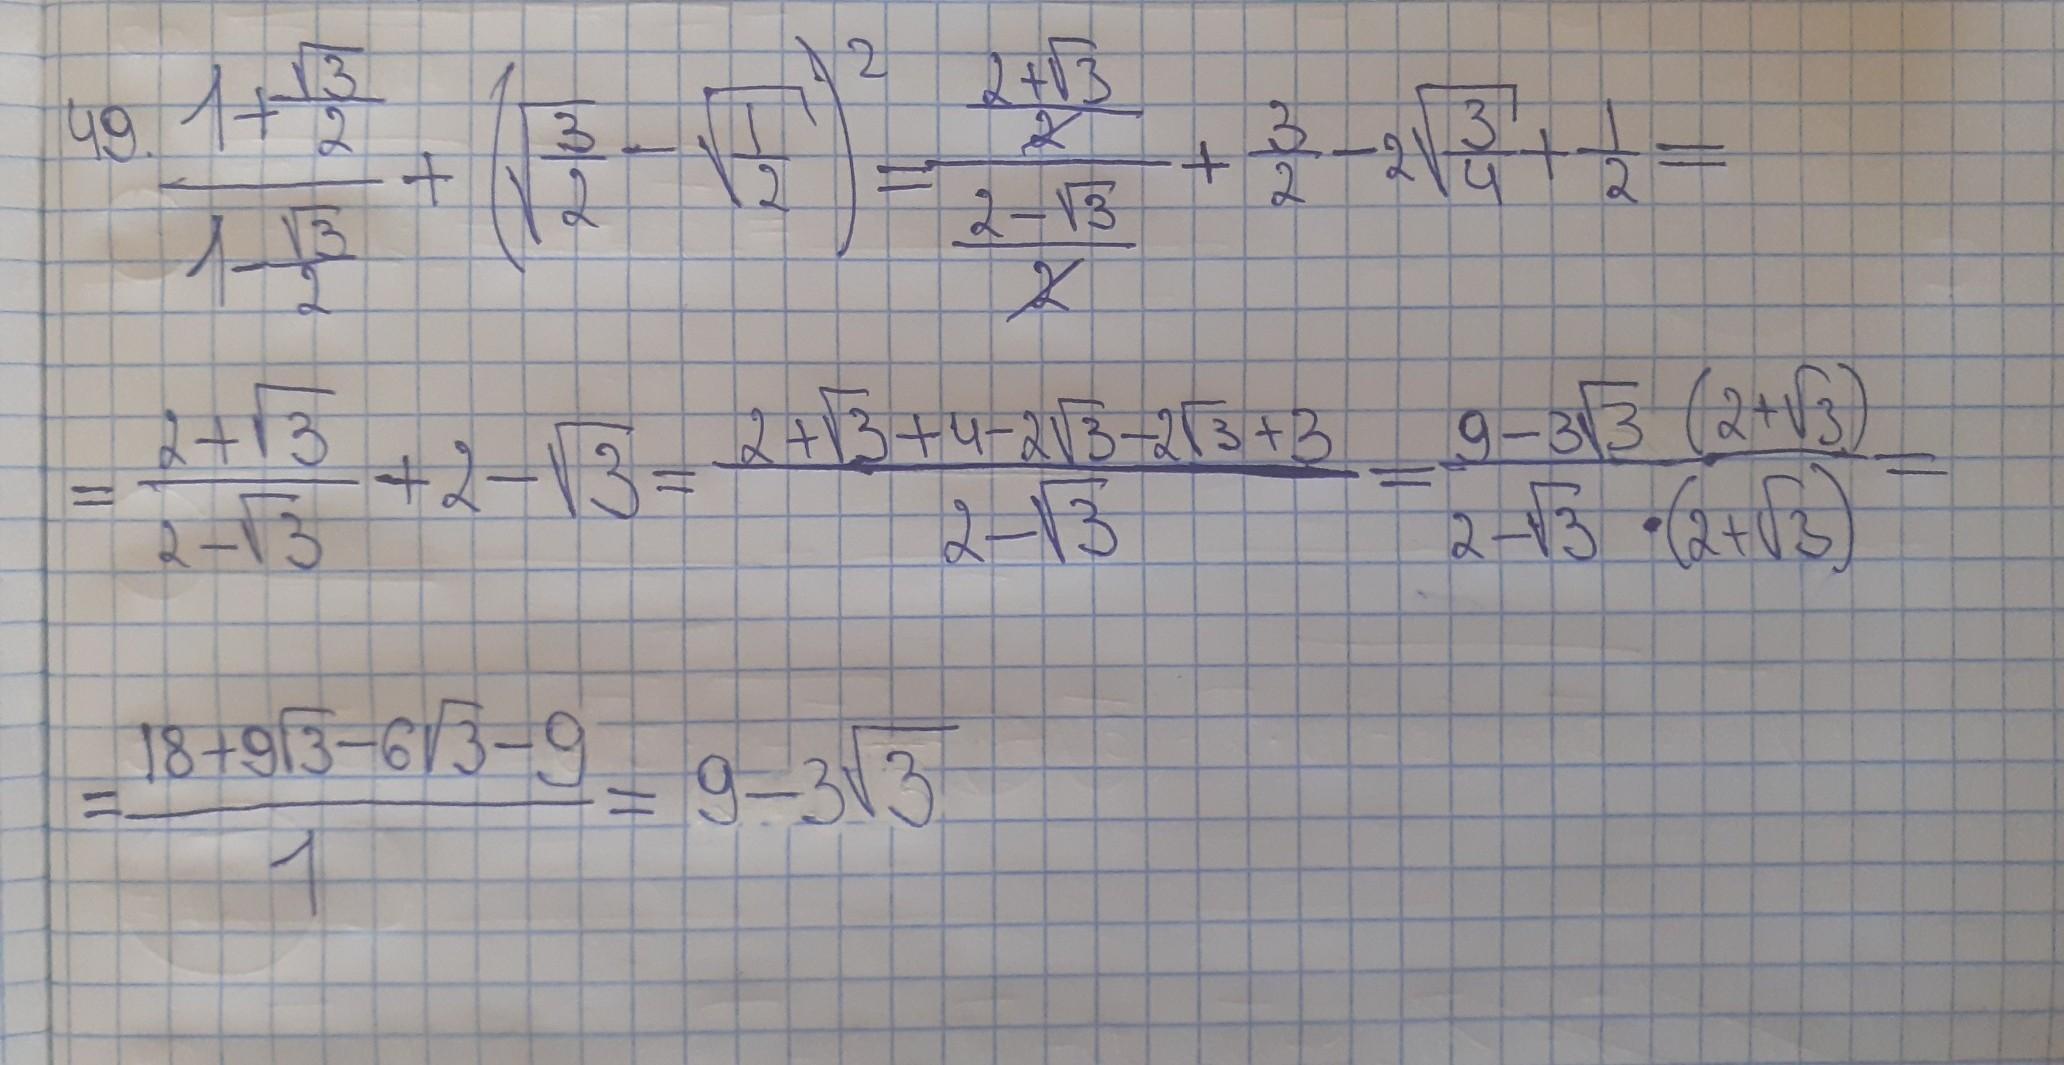 49. (1+√3/2)/(1-√3/2) + (√(3/2) - √(1/2))² = ((2+√3)/2)/((2-√3)/2) + 3/2 - 2√(3/4) + 1/2 =
= (2+√3)/(2-√3) + 2 - √3 = (2+√3+4-2√3-2√3+3)/(2-√3) = (9-3√3 (2+√3))/(2-√3 · (2+√3)) =
= (18+9√3-6√3-9)/1 = 9-3√3